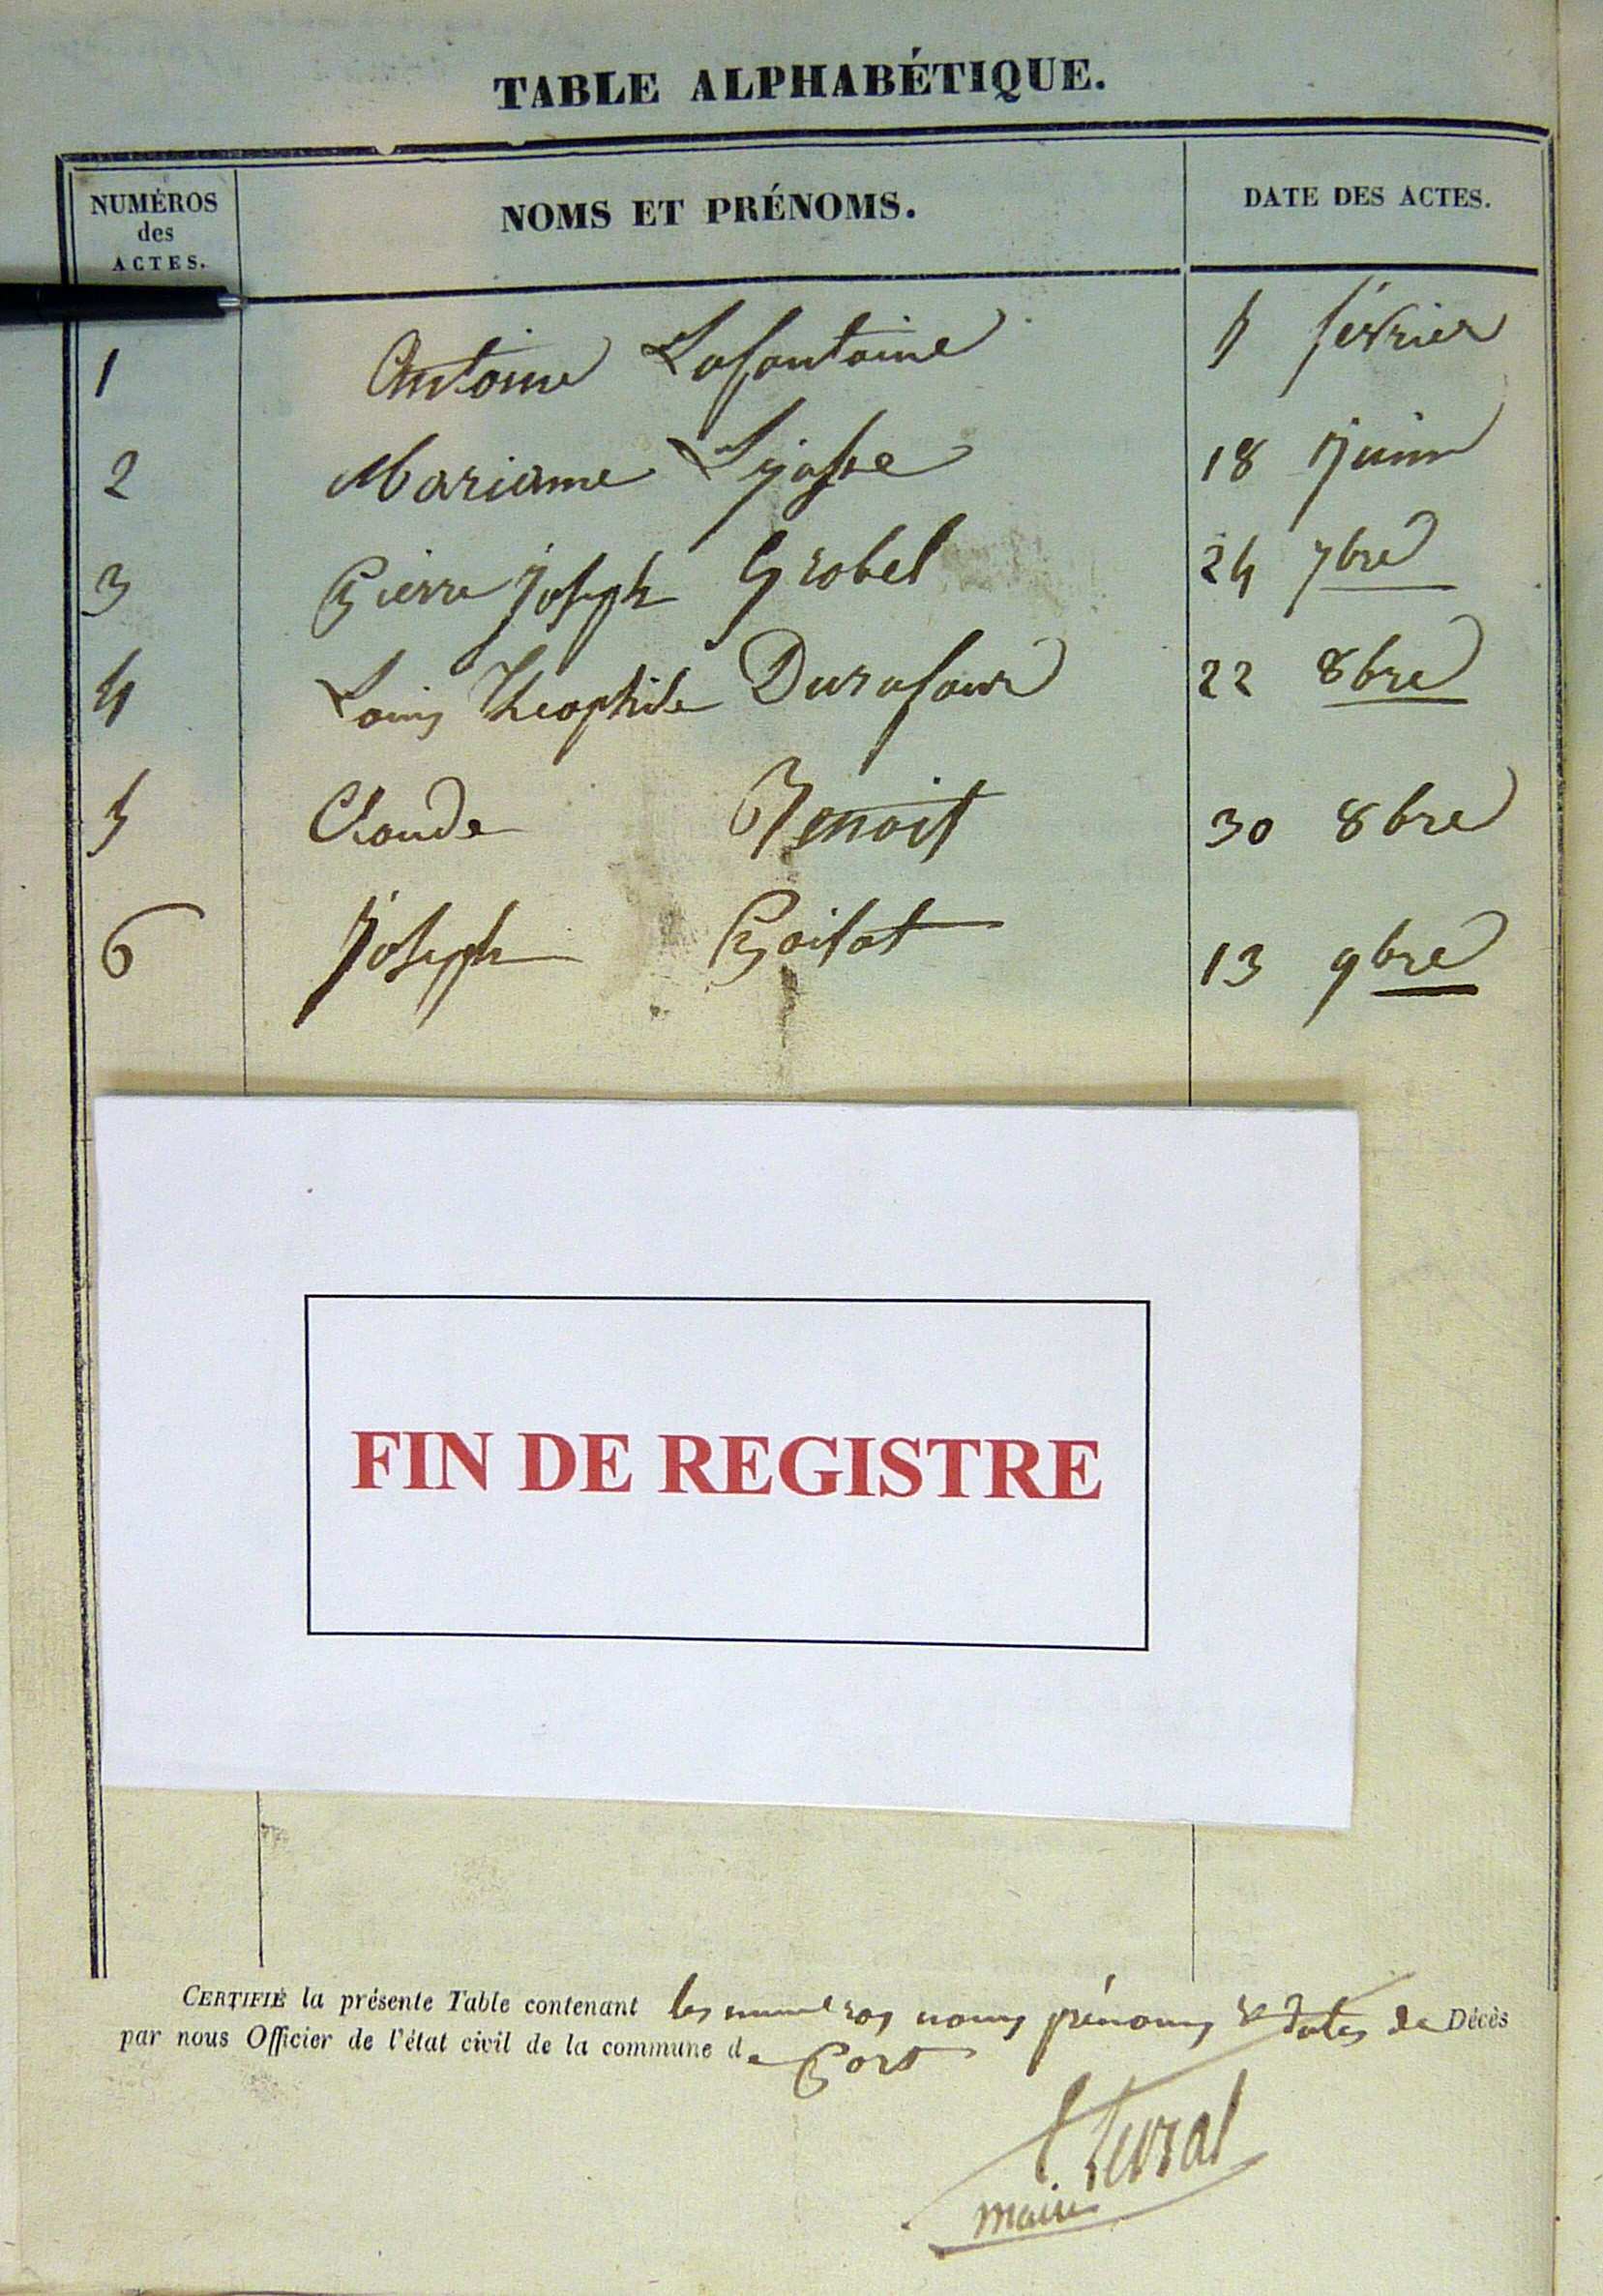 TABLE ALPHABÉTIQUE.
NUMÉROS
des
ACTES.
NOMS ET PRÉNOMS.
DATE DES ACTES.
1 Antoine Lafontaine février
2 Marianne 18 juin
3 Pierre Joseph Grobel 24 7bre
4 Louis Theophile Durafour 22 8bre
5 Claude Benoit 30 8bre
6 Joseph 13 9bre
FIN DE REGISTRE
CERTIFIÉ la présente Table contenant les numeros noms prénoms & dates de Décès
par nous Officier de l'état civil de la commune de Port
maire